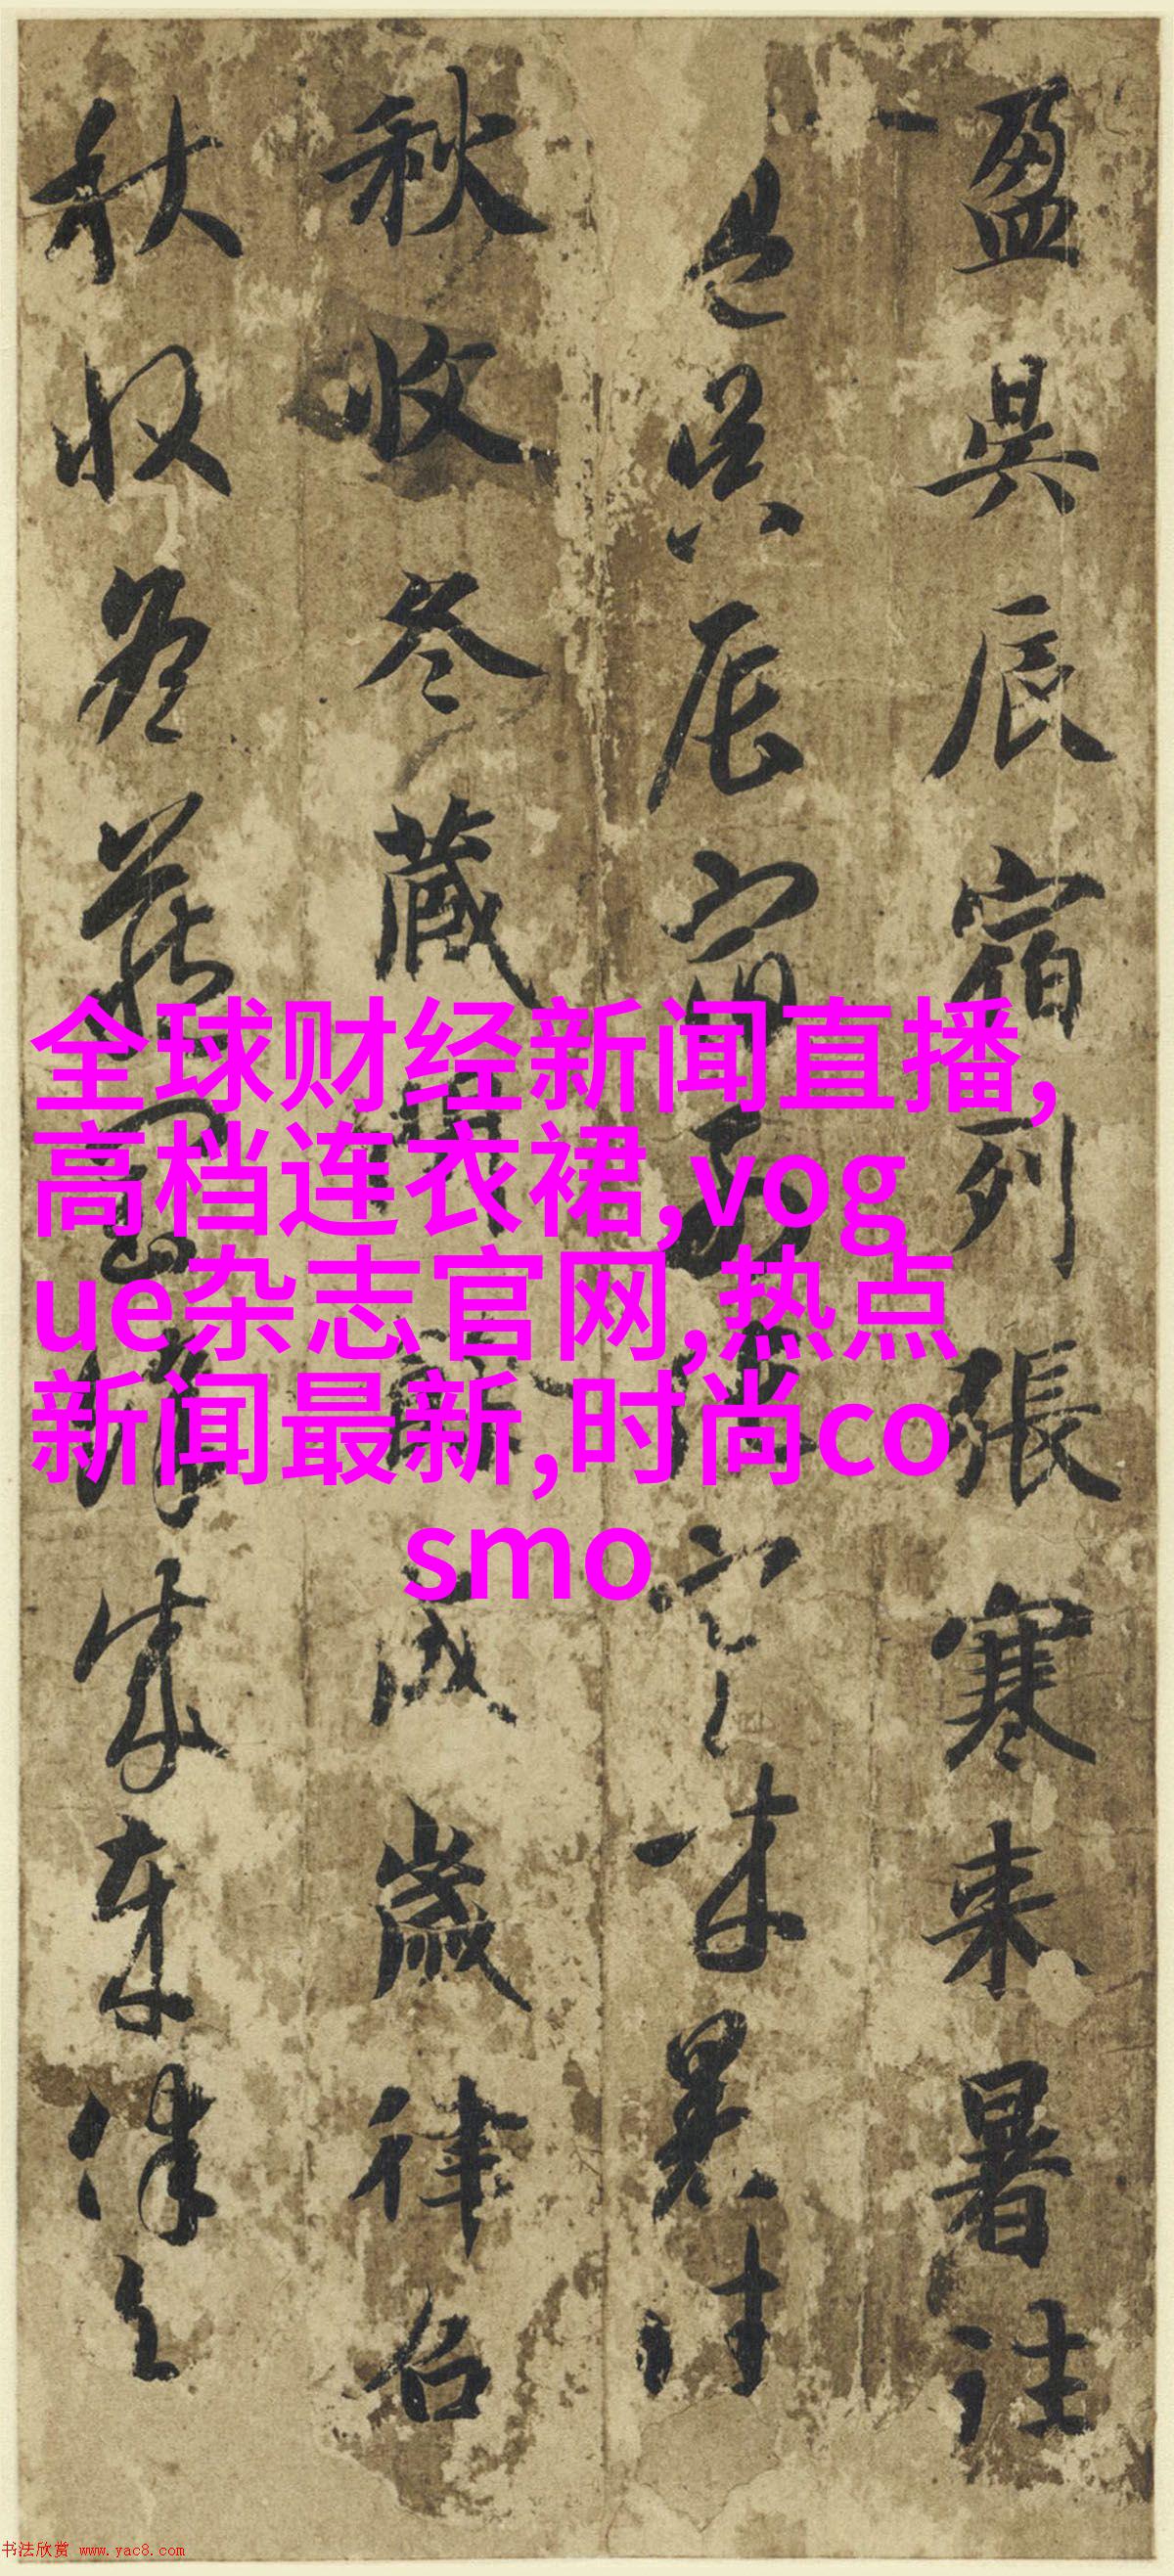 盈昃辰宿列張寒来暑往
盈昃辰宿列張寒来暑往
秋收冬藏成歲律召
秋收冬藏
全球财经新闻直播,
高档连衣裙,vog
ue杂志官网,热点
新闻最新,时尚co
smo
书法欣赏 www.yac8.com